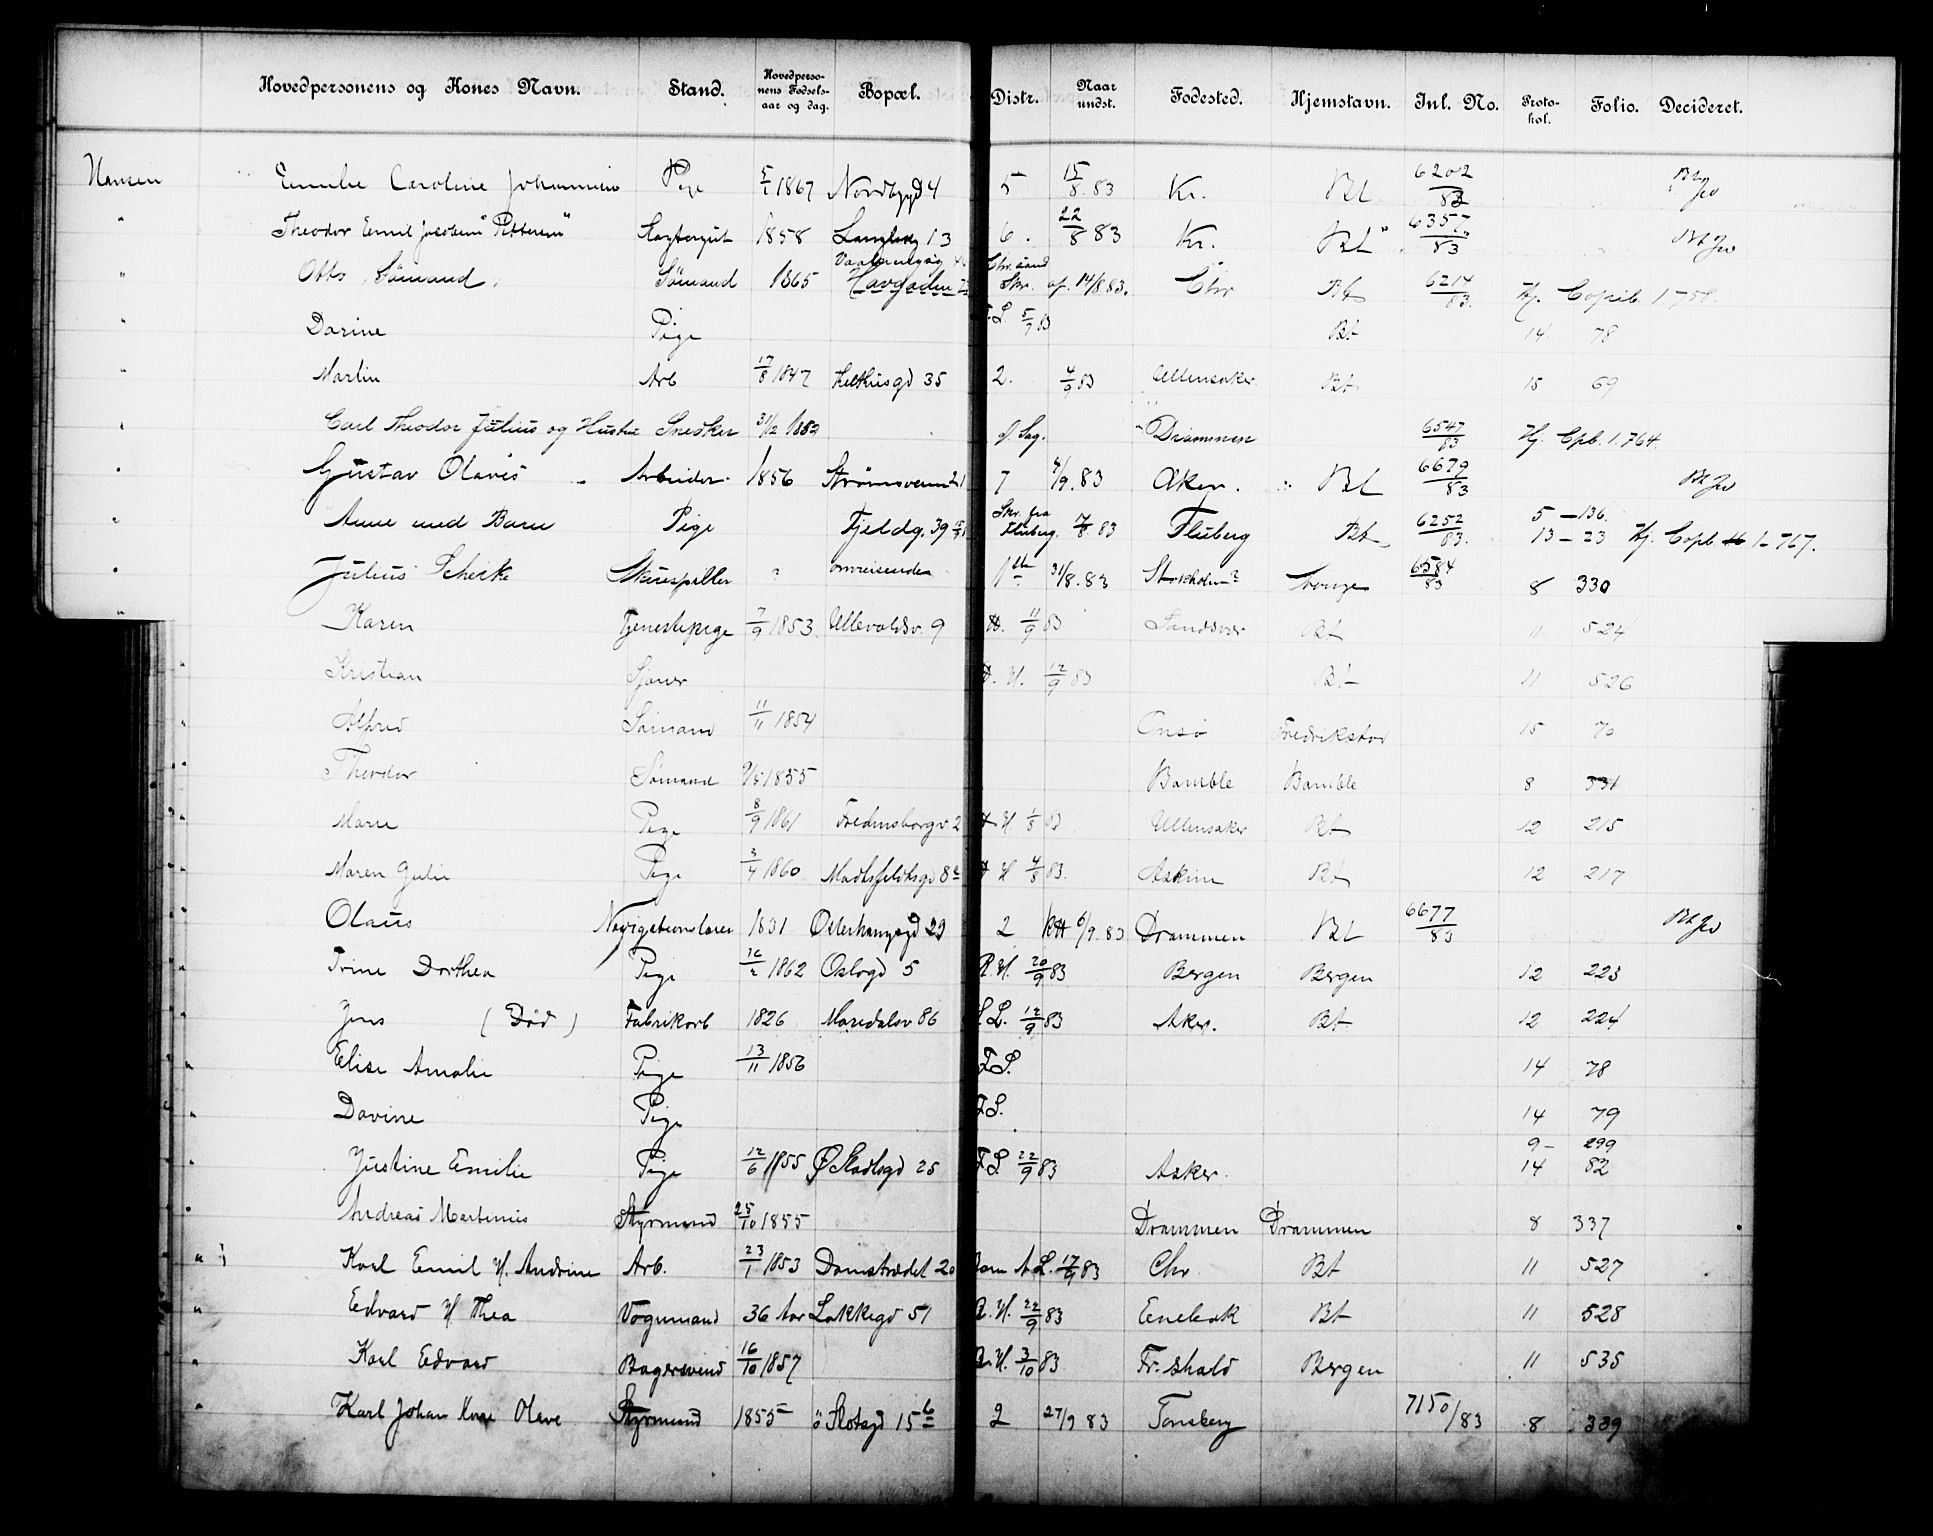 Hovedpersonens og Kones Navn. Stand. Hovedpersonens Fødselsaar og dag. Bopæl. Distr. Naar undst. Fødested. Hjemstavn. Inl. No. Protokol. Folio. Decideret.
Hansen Emilie Caroline Pige 5/1 1867 Nordbygd 4 5 15/8.83 Kr. Bt 6202/83
" Theodor Emil 1858 13 6. 22/8 83 Kr. Bt 6357/83
" Otto, Sømand, Sømand 1865 Havgaden Chr.sand Skr. af. 14/8.83. Chr Bt 6214/83. Hj. Copib. 1758.
" Dorine Pige F.L. 5/9 83 Bt 14 78
" Martin Arb 17/8 1847 35 2. 4/9 83 Ullensaker. Bt 15 69
" Carl Theodor Julius og Hustru Snedker 31/12 Drammen 6547/83 Hj. Cpb. 1.764.
" Gustav Olavis Arbeider 1856 7 4/9.83 Aker. Bt 6679/83
" Anne med Barn Pige Fjeldg. 39 Skr. fra Fluberg. 83 Fluberg Bt 6252/83. 5 - 136. 13 - 23 Hj. Copb. 1-767.
" Julius Scherke Skuespiller ? omreisende 31/8.83 Stokholm? 6584/83 8 330
" Karen Tjenestepige 7/9 1853 Ullevoldsv. 9 11/9 83 Sandsvær Bt 11 524
" Kristian Sjouer 12/9 83 Bt 11 526
" Alfred Sømand 11/11 1854 Onsø Fredrikstad 15 70
Theodor Sømand 9/5 1855 Bamble Bamble 8 331
" Marie Pige 8/9 1861 Fredensborgv 2 83 Ullensaker Bt 12 215
" Maren Julie Pige 3/4 1860 83. Askim Bt 12 217
" Olaus Navigationslærer 1831 Østerhausgd 29 2 6/9.83 Drammen Bt 6677/83
" Trine Dorthea Pige 1862 Oslogd 5 R.H. 20/9 83 Bergen Bergen 12 223
" Jens (Død) Fabrikarb 1826 Maridalsv 86 L. 12/9 83 Aker. Bt 12 224
" Elise Amalie Pige 13/11 1856 F.L. 14 78
" Dorine Pige F.L. 14 79
" Justine Emilie Pige 12/6 1855 Ø Slotsgd 25 F.L. 22/9 83 Asker. 9 - 299 14 82
" Andreas Martinius Styrmand 25/10 1855 Drammen Drammen 8 337
" Karl Emil H. Andrine Arb. 23/1 1853 Damstrædet 20 A.L. 17/9 83 Chr Bt 11 527
" Edvard H Thea Vognmand 36 Aar Lakkegd 51 R.H. 22/9 83 Enebak Bt 11 528
" Karl Edvard Bagersvend 16/10 1857 R.H. 3/10 83 Fr.shald Bergen 11 535
" Karl Johan Kone Olave Styrmand 1855 ø Slotsgd 15 b 2 27/9 83 Tønsberg 7150/83 8 339